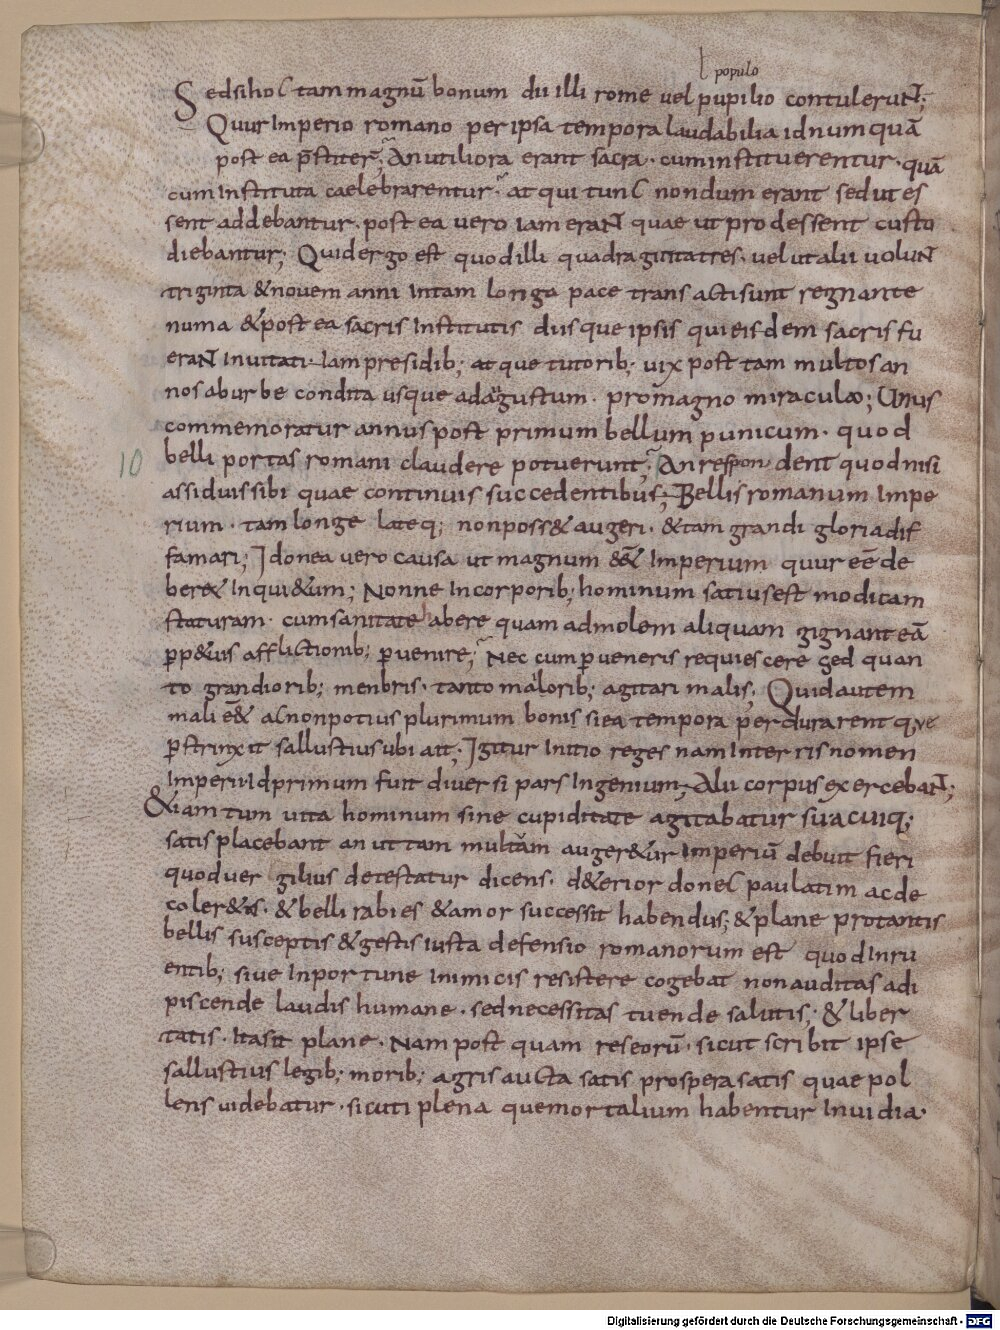 l populo
Sedsihoc tam magnū bonum dii illi rome vel pupilio contulerunt;
Quur Imperio romano per ipsa tempora laudabilia id numquā
post ea p̄stiter; An utiliora erant sacra · cum instituerentur · quā
cum Instituta caelebrarentur · at qui tunc nondum erant sed ut es
sent addebantur · post ea vero iam erant quae ut prodessent custo
diebantur; Quid ergo est quod illi quadraginta tres · vel ut alii volunt
triginta & novem anni In tam longa pace trans acti sunt regnante
numa & post ea sacris Institutis diisque ipsis qui eisdem sacris fu
erant Invitati · Iam presidib; at que tutorib; vix post tam multos an
nos ab urbe condita usque ad agustum · pro magno miraculo; Unus
commemoratur annus post primum bellum punicum · quod
belli portas romani claudere potuerunt; An respondent quod nisi
10
assiduis sibi quae continuis succedentibus; Bellis romanum Impe
rium · tam longe lateq; non poss& augeri · & tam grandi gloria dif
famari; Idonea vero causa ut magnum ēē& Imperium quur eē de
ber& Inqui&um; Nonne In corporib; hominum satius est modicam
staturam · cum sanitate abere quam ad molem aliquam gigante eā
ꝑp&uis afflictionib; ꝑvenire; Nec cum ꝑveneris requiescere sed quan
to grandiorib; menbris · tanto maiorib; agitari malis; Quid autem
mali ēē& ac non potius plurimum bonis si ea tempora perdurarent que
ꝑstrinxit sallustius ubi ait; Igitur Initio reges nam In terris nomen
Imperii Id primum fuit diversi pars Ingenium; Alii corpus exercebant;
&iam tum vita hominum sine cupiditate agitabatur sua cuiq;
satis placebant an ut tam multam auger&ur Imperiū debuit fieri
quod ver gilius detestatur dicens · d&erior donec paulatim ac de
coler &as · & belli rabies & amor successit habendus; & plane pro tantis
bellis susceptis & gestis iusta defensio romanorum est quod Inru
entib; sive Inportune Inimicis resistere cogebat non auditas adi
piscende laudis humane · sed necessitas tuende salutis; & liber
tatis · Ita sit plane · Nam post quam res eorū · sicut scribit ipse
sallustius legib; morib; agris aucta satis prospera satis quae pol
lens videbatur · sicuti plena que mortalium habentur Invidia ·
Digitalisierung gefördert durch die Deutsche Forschungsgemeinschaft - DFG